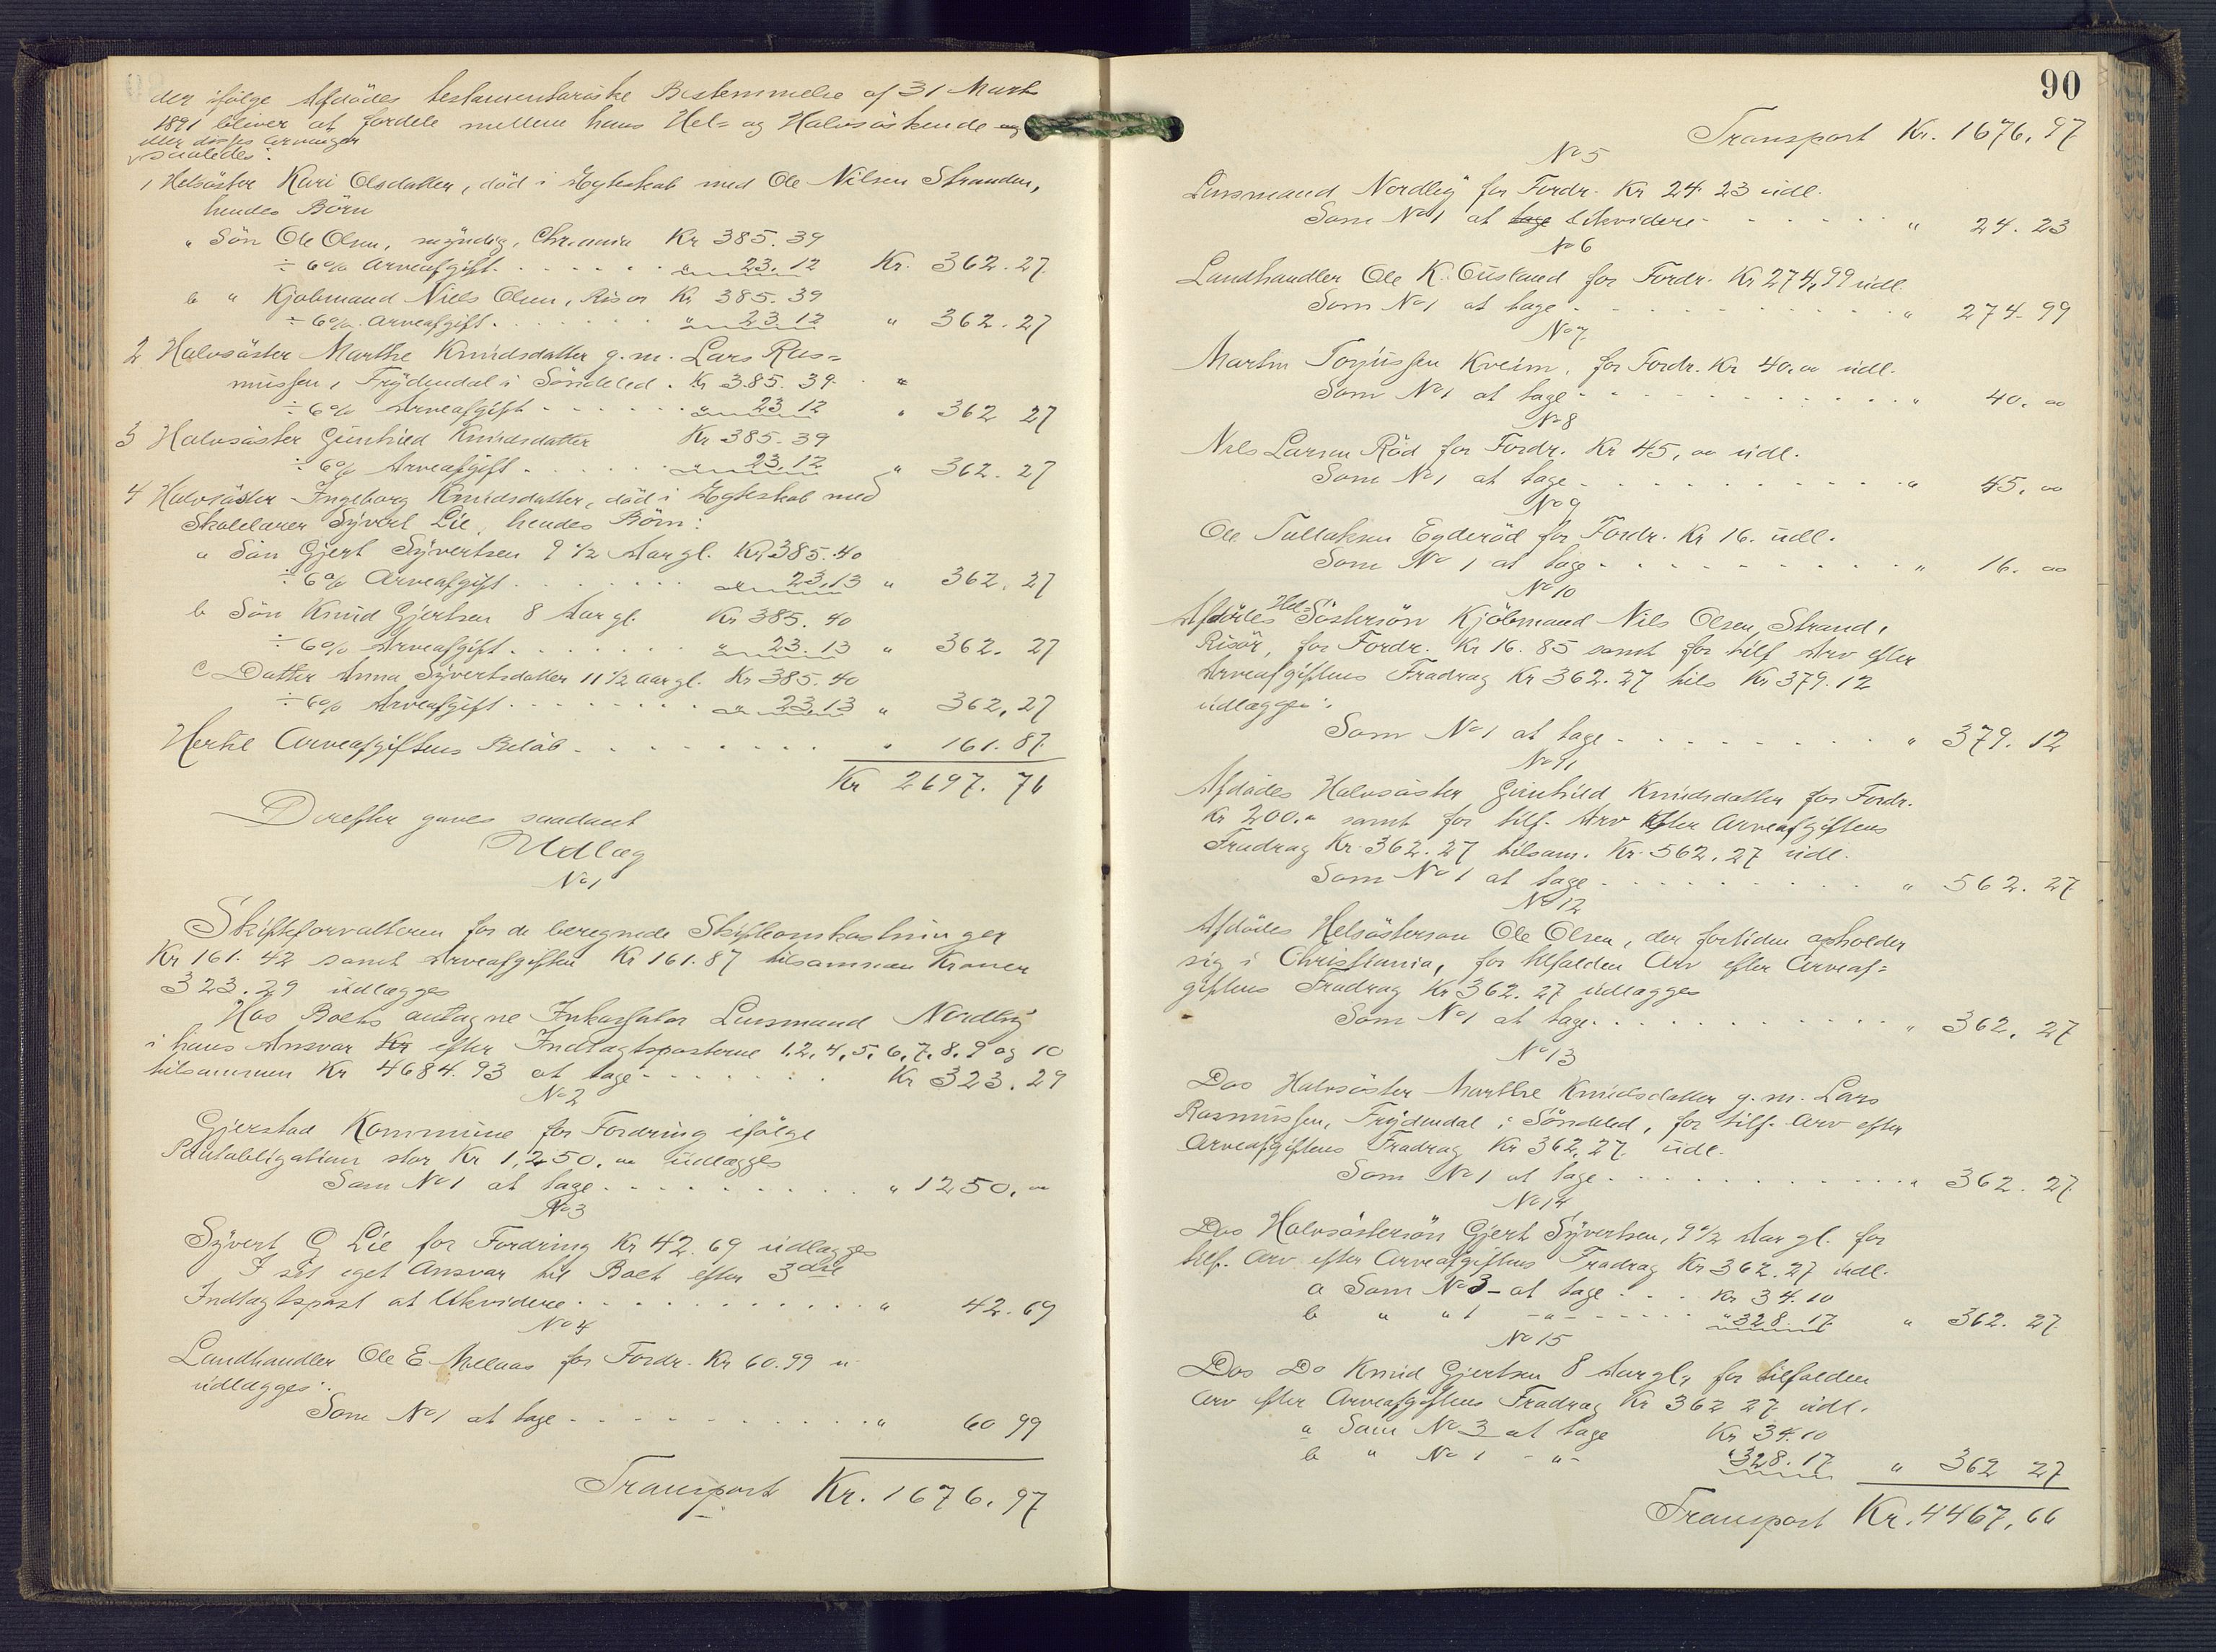 der ifølge Afdødes testamentariske Bestemmelse af 31 Marts
1891 bliver at fordele mellem hans Hel- og Halvsøskende og
eller disses Arvinger
saaledes:
1 Helsøster Kari Olsdatter, død i Ægteskab med Ole Nilsen Stranden,
hendes Børn
" Søn Ole Olsen, myndig, Chr.ania Kr 385.39
÷ 6% Arveafgift . . . . . . " 23.12 Kr. 362.27
b " Kjøbmand Niels Olsen, Risør Kr 385.39
÷ 6% Arveafgift . . . . . . " 23.12 " 362.27
2 Halvsøster Marthe Knudsdatter g.m. Lars Ras=
mussen, Frydendal i Søndeled . Kr 385.39 "
÷ 6% Arveafgift . . . . . . " 23.12 " 362 27
3 Halvsøster Gunhild Knudsdatter Kr 385.39
÷ 6% Arveafgift . . . . . . " 23.12 " 362.27
4 Halvsøster Ingeborg Knudsdatter, død i Ægteskab med
Skolelærer Syvert Lie, hendes Børn:
a Søn Gjert Syvertsen 9 1/2 Aar gl. Kr 385.40
÷ 6% Arveafgift . . . . . . 23.13 " 362.27
b Søn Knud Gjertsen 8 Aar gl. Kr 385.40
÷ 6% Arveafgift . . . . . . " 23.13 " 362.27
c Datter Anna Syvertsdatter 11 1/2 aar gl. Kr 385.40
÷ 6% Arveafgift . . . . . . 23.13 " 362,27
Hertil Arveafgiftens Beløb . . . . . . " 161.87
Kr 2697.76
Derefter gaves saadant
Udlæg
No 1
Skifteforvalteren for de beregnede Skifteomkostninger
Kr 161.42 samt Arveafgiften Kr 161.87 tilsammen Kroner
323.29 udlægges
Hos Boets antagne Inkassator Lensmand Nordby
i hans Ansvar Kr efter Indtægtsposterne 1,2,4,5,6,7,8,9 og 10
tilsammen Kr 4684.93 at tage . . . . . Kr 323.29
No 2
Gjerstad Kommune for Fordring ifølge
Pantobligation stor Kr 1,250,00 udlægges
Som No 1 at tage . . . . . . " 1250,00
No 3
Syvert G Lie for Fordring Kr 42.69 udlægges
I sit eget Ansvar til Boet efter 3die
Indtægtspost at likvidere . . . . . . " 42.69
No 4
Landhandler Ole E. Melaas for Fordr. Kr 60.99
udlægges:
Som No 1 at tage . . . . . . " 60 99
Transport Kr. 1676,97
90
Transport Kr. 1676,97
No 5
Lensmand Nordby for Fordr. Kr 24.23 udl.
Som No 1 at tage likvidere . . . . . . " 24.23
No 6
Landhandler Ole K. Ousland for Fordr. Kr 274,99 udl.
Som No 1 at tage . . . . . . " 274.99
No 7
Martin Torjussen Kveim, for Fordr. Kr 40.00 udl.
Som No 1 at tage . . . . . . " 40.00
No 8
Nils Larsen Rød for Fordr. Kr 45,00 udl.
Som No 1 at tage . . . . . . " 45,00
No 9
Ole Tallaksen Egderød for Fordr. Kr 16. udl.
Som No 1 at tage . . . . . . " 16.00
No 10
Hel
Afdødes Søstersøn Kjøbmand Nils Olsen Strand,
Risør, for Fordr. Kr 16.85 samt for tilf. Arv efter
Arveafgiftens Fradrag Kr 362.27 tils Kr 379.12
udlægges:
Som No 1 at tage . . . . . . " 379.12
No 11
Afdødes Halvsøster Gunhild Knudsdatter for Fordr.
Kr 200.00 samt for tilf. Arv efter Arveafgiftens
Fradrag Kr. 362.27 tilsam. Kr. 562.27 udl.
Som No 1 at tage . . . . . . " 562.27
No 12
Afdødes Helsøstersøn Ole Olsen, der fortiden opholder
sig i Christiania, for tilfalden Arv efter Arveaf=
giftens Fradrag Kr 362.27 udlægges
Som No 1 at tage . . . . . . " 362.27
No 13
Dos Halvsøster Marthe Knudsdatter g.m. Lars
Rasmussen, Frydendal i Søndeled, for tilf. Arv efter
Arveafgiftens Fradrag Kr 362.27 udl.
Som No 1 at tage . . . . . . " 362.27
No 14
Dos Halvsøstersøn Gjert Syvertsen, 9 1/2 Aar gl. for
tilf. Arv efter Arveafgiftens Fradrag Kr 362.27 udl.
a Som No 3 at tage . . . Kr 34.10
b " " 1 - " - . . . . . " 328.17 " 362.27
No 15
Dos Do Knud Gjertsen 8 Aar gl, for tilfalden
Arv efter Arveafgiftens Fradrag Kr 362 27 udl.
a Som No 3 at tage Kr 34.10
b " No 1 - " - " 328.17 " 362 27
Transport Kr. 4467,66